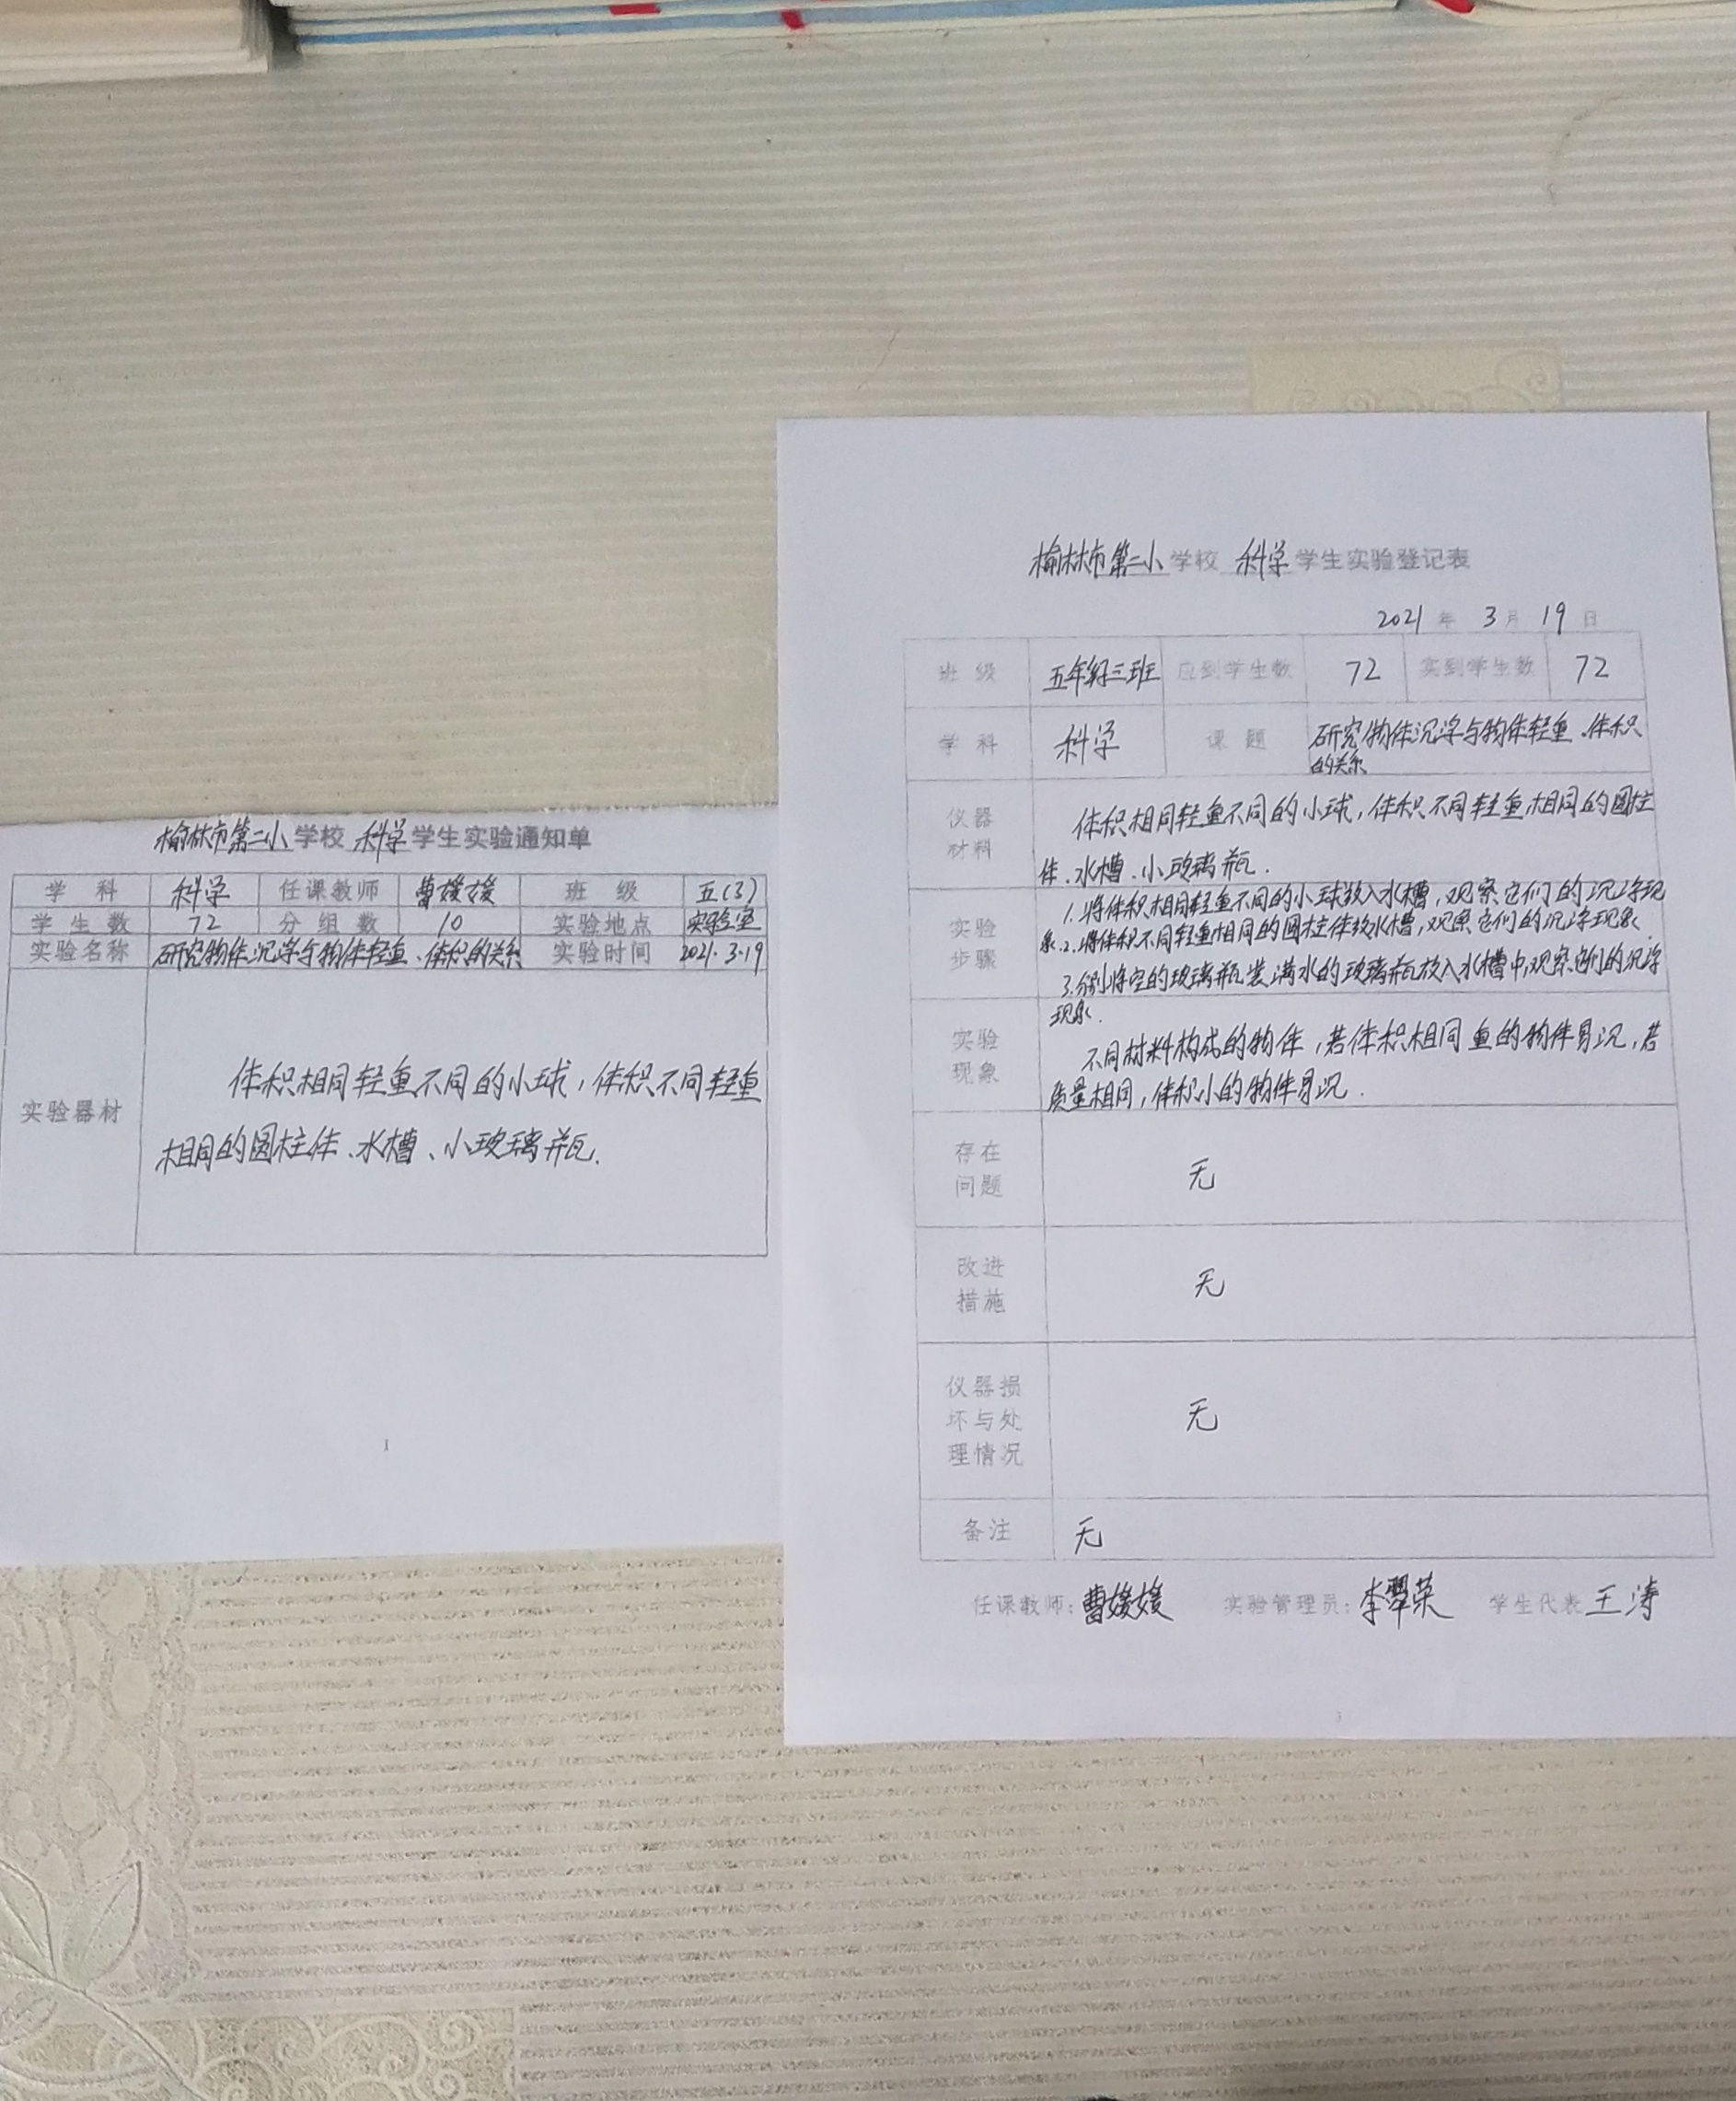 榆林市第二小学校 科学 学生实验通知单
学 科 科学 任课教师 曹媛媛 班 级 五(3)
学生数 72 分组数 10 实验地点 实验室
实验名称 研究物体沉浮与物体轻重、体积的关系 实验时间 2021.3.19
实验器材
体积相同轻重不同的小球，体积不同轻重
相同的圆柱体、水槽、小玻璃瓶.
1
榆林市第二小学校 科学 学生实验登记表
2021 年 3 月 19 日
班 级 五年级三班 应到学生数 72 实到学生数 72
学 科 科学 课 题 研究物体沉浮与物体轻重、体积
的关系
仪器
材料
体积相同轻重不同的小球，体积不同轻重相同的圆柱
体、水槽、小玻璃瓶.
实验
步骤
1.将体积相同轻重不同的小球放入水槽，观察它们的沉浮现
象.2.将体积不同轻重相同的圆柱体放水槽，观察它们的沉浮现象.
3.分别将空的玻璃瓶装满水的玻璃瓶放入水槽中,观察它们的沉浮
现象.
实验
现象
不同材料构成的物体，若体积相同重的物体易沉，若
质量相同，体积小的物体易沉.
存在
问题
无
改进
措施
无
仪器损
坏与处
理情况
无
备注 无
任课教师：曹媛媛 实验管理员：李翠荣 学生代表 王涛
3